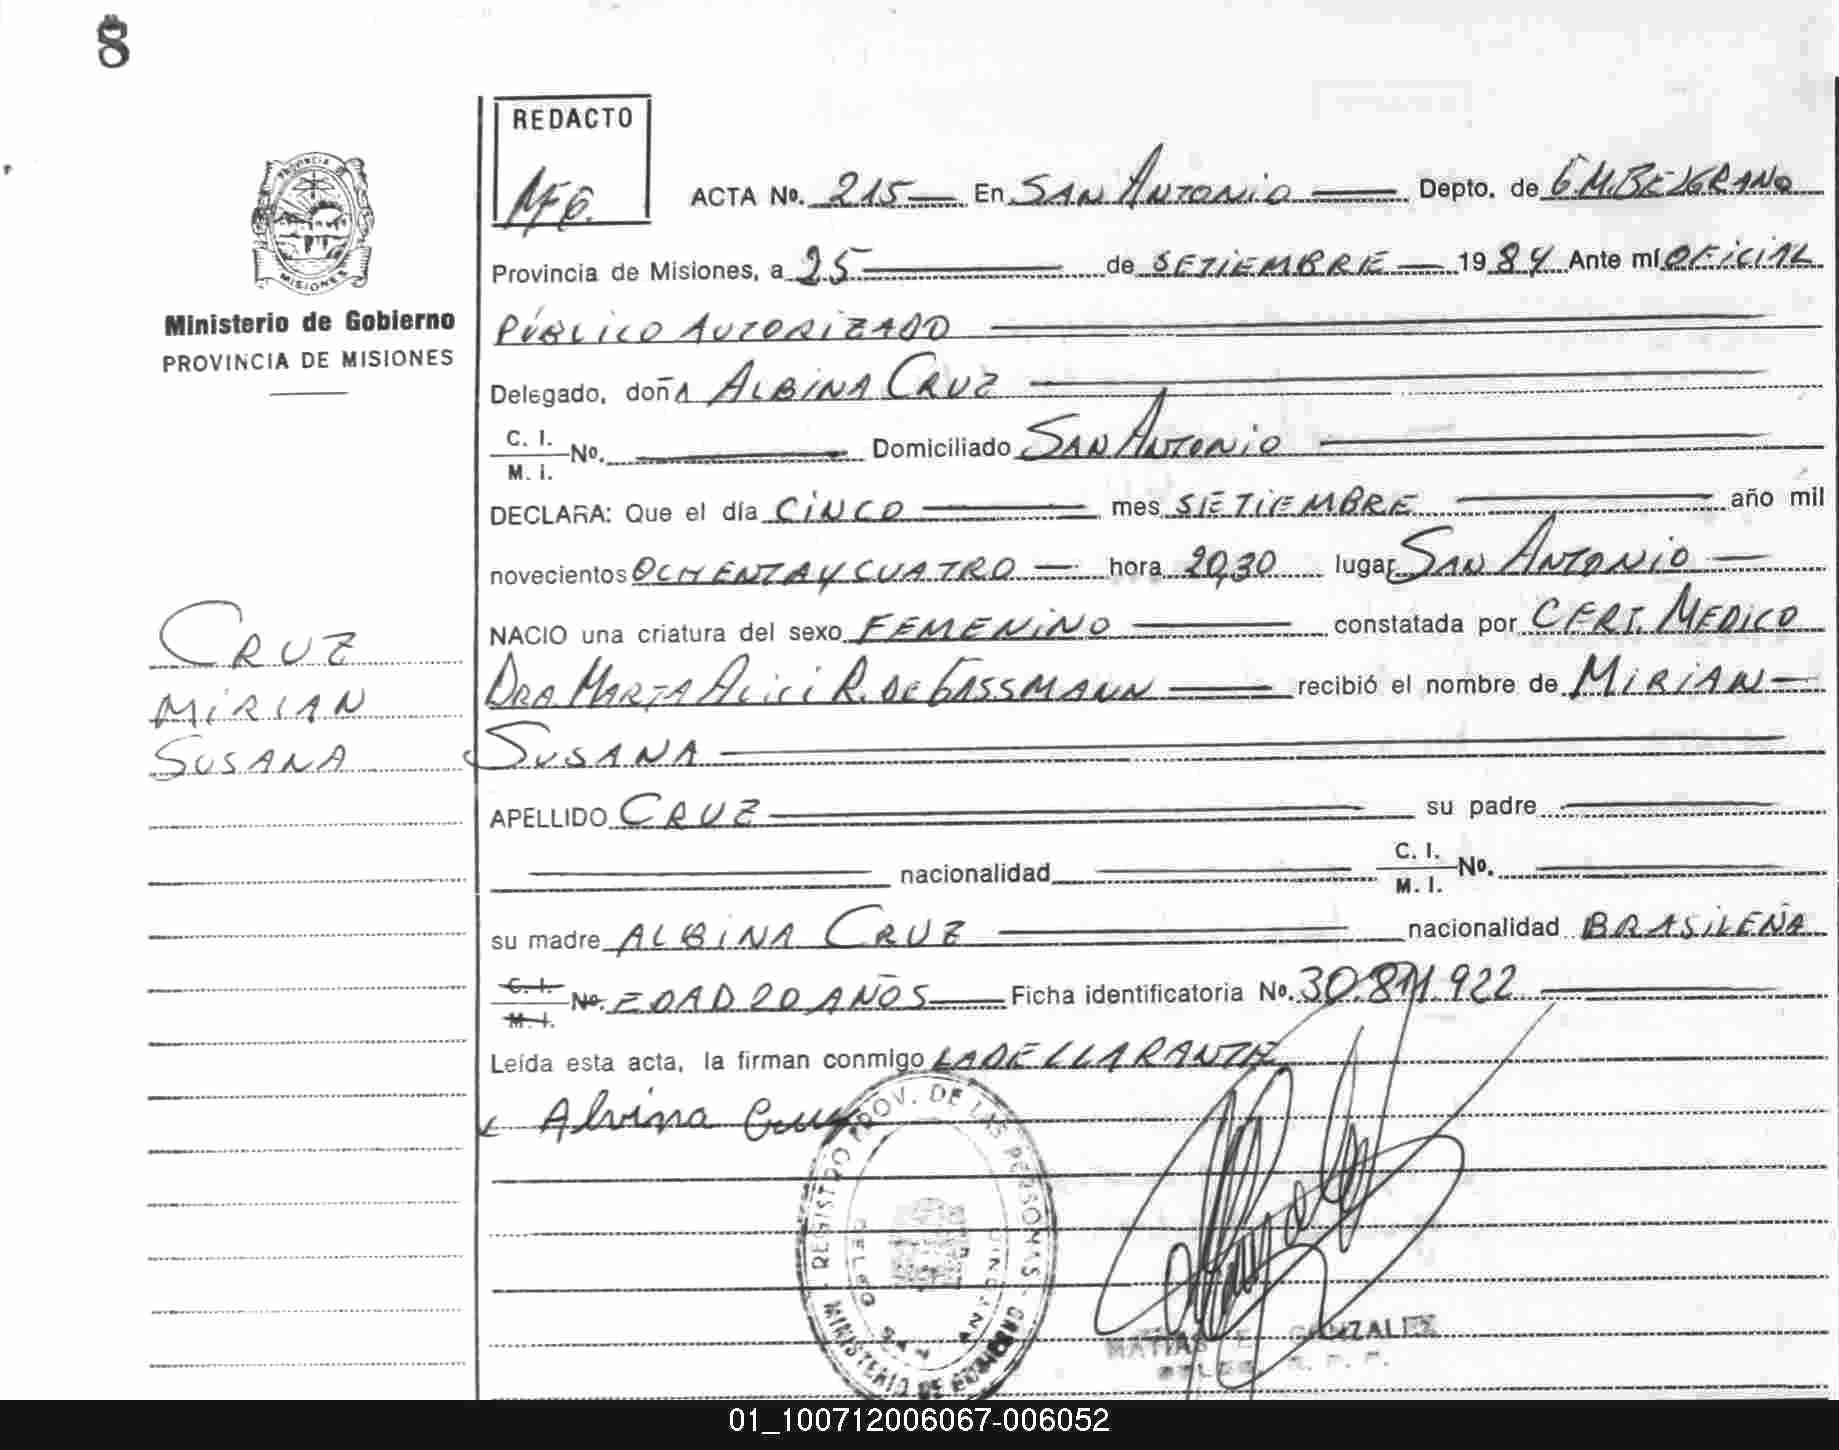 8
REDACTO
MFG.
ACTA No. 215 En SAN ANTONIO Depto. de G.M.BELGRANO
Provincia de Misiones, a 25 de SETIEMBRE 1984 Ante mí OFICIAL
PÚBLICO AUTORIZADO
Delegado, doñA ALBINA CRUZ
C. I.
M. I. No. Domiciliado SAN ANTONIO
DECLARA: Que el día CINCO mes SETIEMBRE año mil
novecientos OCHENTA Y CUATRO hora 20,30 lugar SAN ANTONIO
NACIO una criatura del sexo FEMENINO constatada por CERT. MEDICO
DRA. MARTA ALICI R. DE GASSMANN recibió el nombre de MIRIAN
SUSANA
APELLIDO CRUZ su padre
nacionalidad C. I.
M. I. No.
su madre ALBINA CRUZ nacionalidad BRASILEÑA
C. I.
M. I. No. EDAD 20 AÑOS Ficha identificatoria No. 30.811.922
Leída esta acta, la firman conmigo LA DECLARANTE
Alvina Cruz
PROVINCIA
MISIONES
Ministerio de Gobierno
PROVINCIA DE MISIONES
CRUZ
MIRIAN
SUSANA
REGISTRO PROV. DE LAS PERSONAS
MINISTERIO DE GOBIERNO
MATIAS E. GONZALEZ
01_100712006067-006052